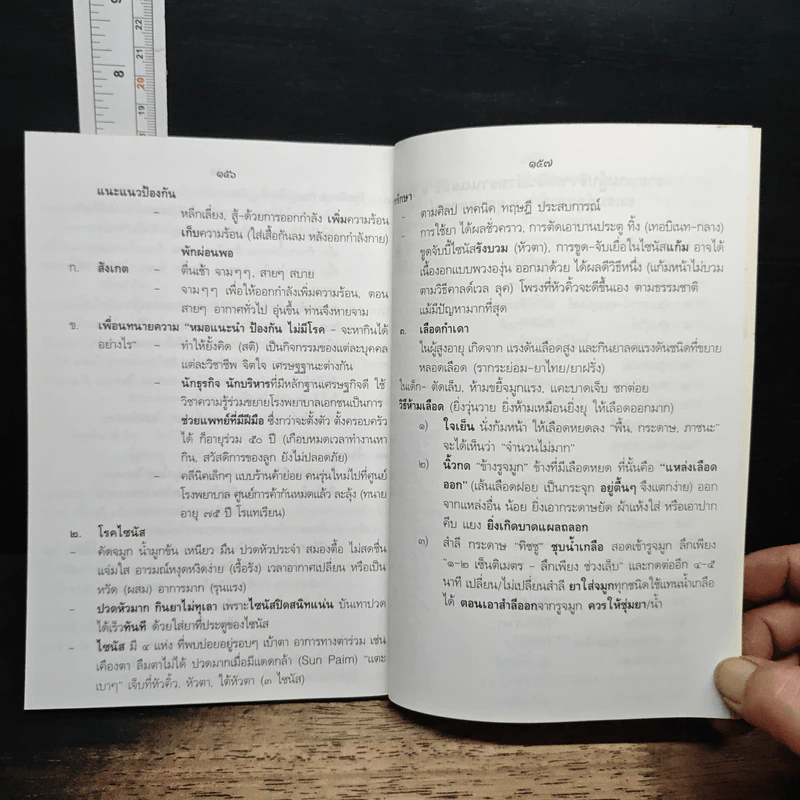 8
22
21
20
19
๑๕๖
แนะแนวป้องกัน
- หลีกเลี่ยง, สู้-ด้วยการออกกำลัง เพิ่มความร้อน
เก็บความร้อน (ใส่เสื้อกันลม หลังออกกำลังกาย)
พักผ่อนพอ
ก. สังเกต - ตื่นเช้า จามๆๆ, สายๆ สบาย
- จามๆๆ เพื่อให้ออกกำลังเพิ่มความร้อน, ตอน
สายๆ อากาศทั่วไป อุ่นขึ้น ท่านจึงหายจาม
ข. เพื่อนทนายความ "หมอแนะนำ ป้องกัน ไม่มีโรค - จะหากินได้
อย่างไร" - ทำให้ยั้งคิด (สติ) เป็นกิจกรรมของแต่ละบุคคล
แต่ละวิชาชีพ จิตใจ เศรษฐฐานะต่างกัน
- นักธุรกิจ นักบริหารที่มีหลักฐานเศรษฐกิจดี ใช้
วิชาความรู้ร่วมขยายโรงพยาบาลเอกชนเป็นการ
ช่วยแพทย์ที่มีฝีมือ ซึ่งกว่าจะตั้งตัว ตั้งครอบครัว
ได้ ก็อายุร่วม ๕๐ ปี (เกือบหมดเวลาทำงานหา
กิน, สวัสดิการของลูก ยังไม่ปลอดภัย)
- คลีนิคเล็กๆ แบบร้านค้าย่อย คนรุ่นใหม่ไปที่ศูนย์
โรงพยาบาล ศูนย์การค้ากันหมดแล้ว ละลุ้ง (ทนาย
อายุ ๗๕ ปี โรแทเรียน)
๒. โรคไซนัส
- คัดจมูก น้ำมูกข้น เหนียว มึน ปวดหัวประจำ สมองตื้อ ไม่สดชื่น
แจ่มใส อารมณ์หงุดหงิดง่าย (เรื้อรัง) เวลาอากาศเปลี่ยน หรือเป็น
หวัด (ผสม) อาการมาก (รุนแรง)
- ปวดหัวมาก กินยาไม่ทุเลา เพราะไซนัสปิดสนิทแน่น บันเทาปวด
ได้เร็วทันที ด้วยใส่ยาที่ประตูของไซนัส
- ไซนัส มี ๔ แห่ง ที่พบบ่อยอยู่รอบๆ เบ้าตา อาการทางตาร่วม เช่น
เคืองตา ลืมตาไม่ได้ ปวดมากเมื่อมีแดดกล้า (Sun Paim) "แตะ
เบาๆ" เจ็บที่หัวคิ้ว, หัวตา, ใต้หัวตา (๓ ไซนัส)
๑๕๗
รักษา
- ตามศิลป เทคนิค ทฤษฎี ประสบการณ์
- การใช้ยา ได้ผลชั่วคราว, การตัดเอาบานประตู ทิ้ง (เทอบิเนท-กลาง)
ขูดจับปี้ไซนัสรังบวม (หัวตา), การขูด-จับเยื่อในไซนัสแก้ม อาจได้
เนื้องอกแบบพวงองุ่น ออกมาด้วย ได้ผลดีวิธีหนึ่ง (แก้มหน้าไม่บวม
ตามวิธีคาลด์เวล ลุค) โพรงที่หัวคิ้วจะดีขึ้นเอง ตามธรรมชาติ
แม้มีปัญหามากที่สุด
๓. เลือดกำเดา
ในผู้สูงอายุ เกิดจาก แรงดันเลือดสูง และกินยาลดแรงดันชนิดที่ขยาย
หลอดเลือด (รากระย่อม-ยาไทย/ยาฝรั่ง)
ในเด็ก- ดัดเล็บ, ห้ามขยี้จมูกแรง, แคะบาดเจ็บ ชกต่อย
วิธีห้ามเลือด (ยิ่งวุ่นวาย ยิ่งห้ามเหมือนยิ่งยุ ให้เลือดออกมาก)
๑) ใจเย็น นั่งก้มหน้า ให้เลือดหยดลง "พื้น, กระดาษ, ภาชนะ"
จะได้เห็นว่า "จำนวนไม่มาก"
๒) นิ้วกด "ข้างรูจมูก" ข้างที่มีเลือดหยด ที่นั้นคือ "แหล่งเลือด
ออก" (เส้นเลือดฝอย เป็นกระจุก อยู่ตื้นๆ จึงแตกง่าย) ออก
จากแหล่งอื่น น้อย ยิ่งเอากระดาษยัด ผ้าแห้งใส่ หรือเอาปาก
คีบ แยง ยิ่งเกิดบาดแผลถลอก
๓) สำลี กระดาษ "ทิชชู" ชุบน้ำเกลือ สอดเข้ารูจมูก ลึกเพียง
"๑-๒ เซ็นติเมตร - ลึกเพียง ช่วงเล็บ" และกดต่ออีก ๔-๕
นาที เปลี่ยน/ไม่เปลี่ยนสำลี ยาใส่จมูกทุกชนิดใช้แทนน้ำเกลือ
ได้ ตอนเอาสำลีออกจากรูจมูก ควรให้ชุ่มยา/น้ำ